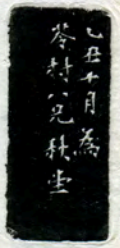 乙丑十月為
苓村八兄秋堂